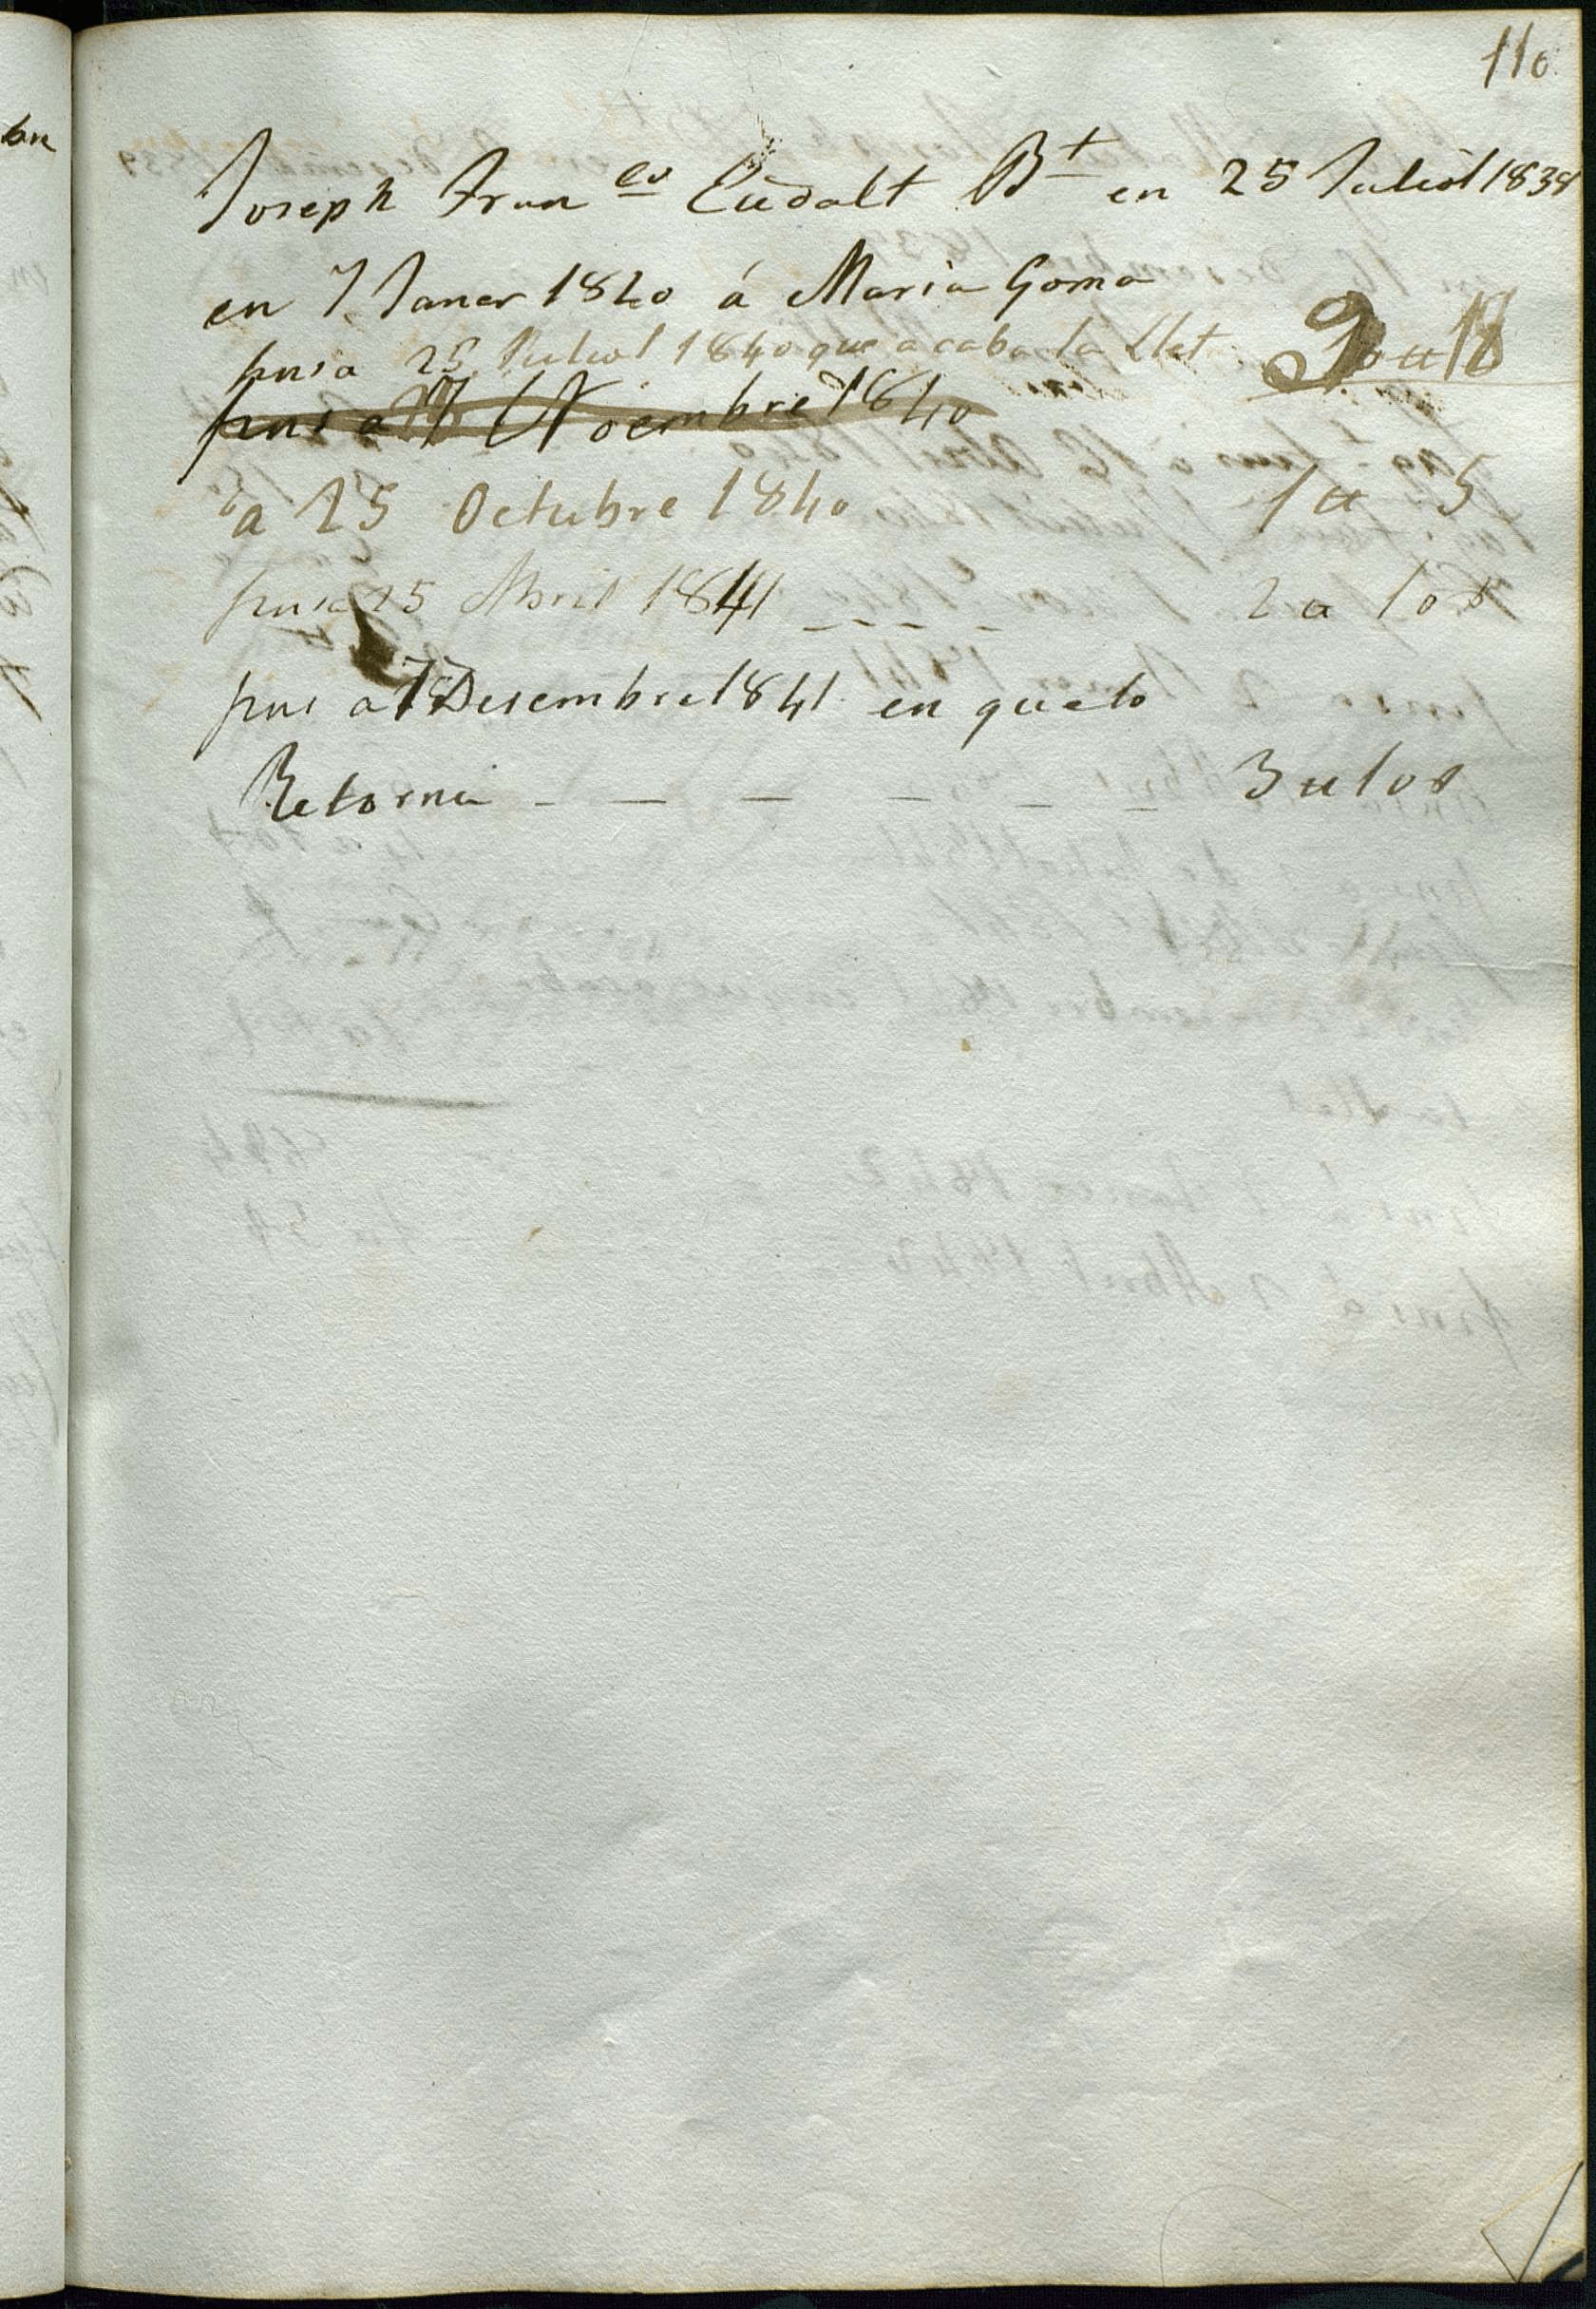 110
Joseph Fran co Eudalt Bt en 25 Juliol 1838
en 7 Janer 1840 á Maria Goma
fins a 25 Juliol 1840 que acaba la Llet
fins a 17 Noembre 1840
a 25 Octubre 1840 1 tt 5
fins a 25 Abril 1841 - - - - 2 tt 10 s
fins a Desembre 1841 en que lo
Retorna - - - - - - 3 tt 10 s